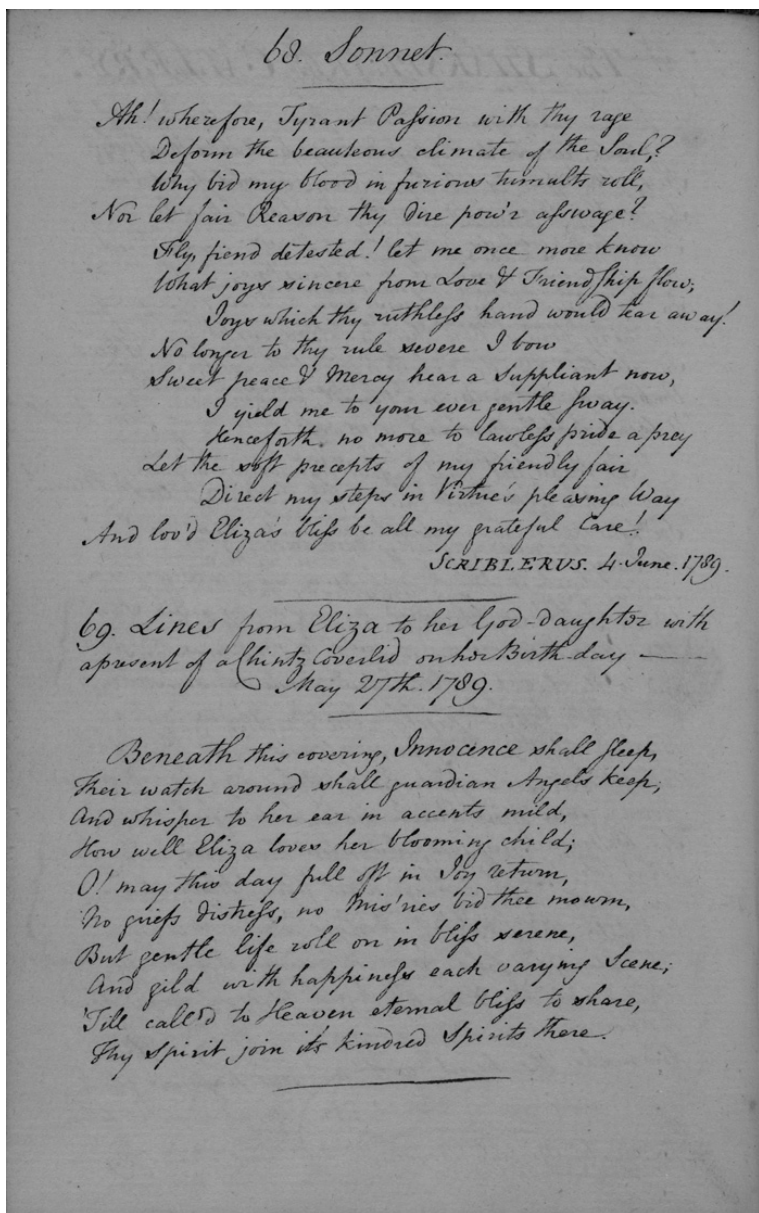 68. Sonnet.
Ah! wherefore, Tyrant Passion with thy rage
Deform the beauteous climate of the Soul,?
Why bid my blood in furious tumults roll,
Nor let fair Reason thy dire pow'r asswage?
Fly, fiend detested! let me once more know
What joys sincere from Love & Friendship flow;
Joys which thy ruthless hand would tear away!
No longer to thy rule severe I bow
Sweet peace & Mercy hear a Suppliant now,
I yield me to your ever gentle sway.
Henceforth, no more to lawless pride a prey
Let the soft precepts of my friendly fair
Direct my steps in Virtue's pleasing Way
And lov'd Eliza's bliss be all my grateful Care!
SCRIBLERUS. 4. June. 1789.
69. Lines from Eliza to her God-daughter with
a present of a Chintz Coverlid on her Birth-day —
May 27th. 1789.
Beneath this covering, Innocence shall sleep,
Their watch around shall guardian Angels keep;
And whisper to her ear in accents mild,
How well Eliza loves her blooming child;
O! may this day full oft in Joy return,
No griefs distress, no Mis'ries bid thee mourn,
But gentle life roll on in bliss serene,
And gild with happiness each varying Scene;
'Till call'd to Heaven eternal bliss to share,
Thy spirit join it's kindred Spirits there.